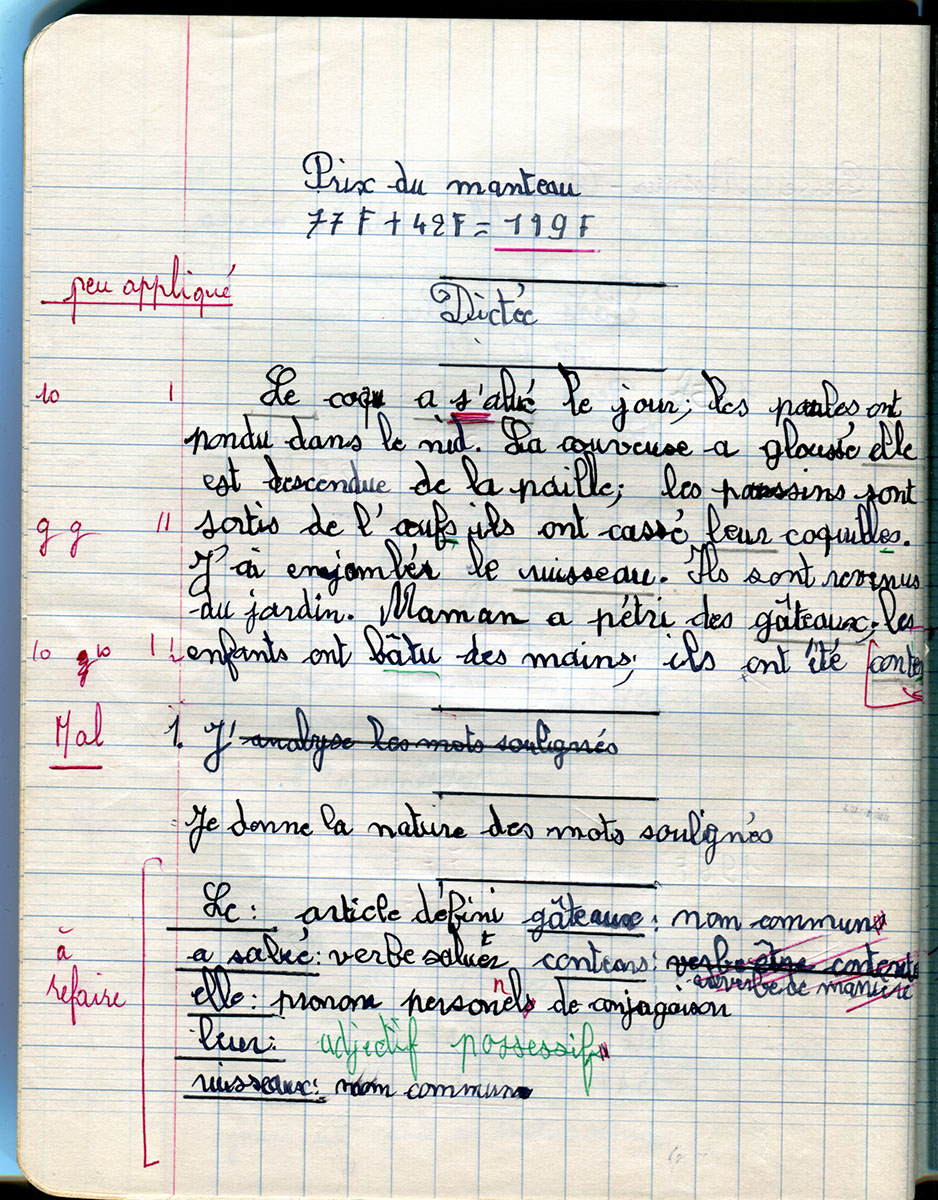 Prix du manteau
77 F + 42 F = 119 F
peu appliqué
Dictée
10 I Le coq a s'alué le jour; les poules ont
pondu dans le nid. La couveuse a gloussé elle
est descendue de la paille; les poussins sont
g g II sortis de l'œufs ils ont cassé leur coquilles.
J'ai enjambér le ruisseau. Ils sont revenus
du jardin. Maman a pétri des gâteaux; les
10 g 10 II enfants ont bâtu des mains; ils ont été
Mal 1. J'analyse les mots soulignés
Je donne la nature des mots soulignés
Le: article défini gâteaux: nom commun
a salué: verbe saluer contents: verbe être
adverbe de manière
à refaire elle: pronom personnel de conjugaison
leur: adjectif possessif
ruisseaux: nom commun